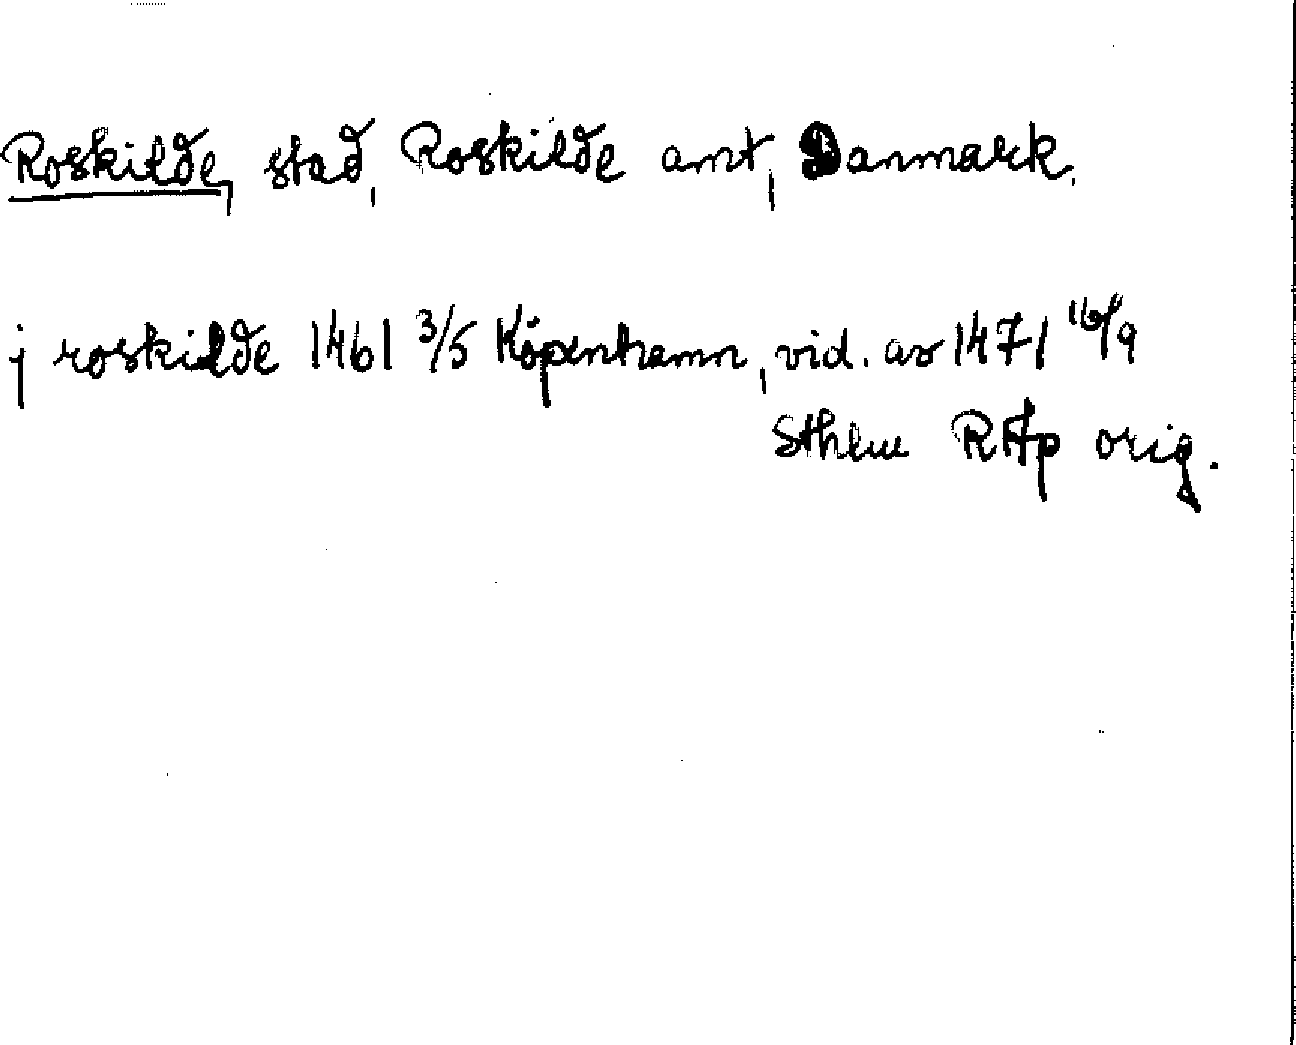 Roskilde, stad, Roskilde amt, Danmark.
j roskilde 1461 3/5 Köpenhamn, vid. av 1471 16/9
Sthlm RAp orig.